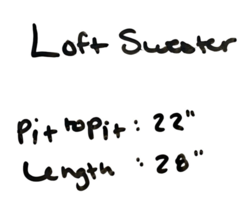 Loft Sweater
Pit to Pit: 22"
Length : 28"